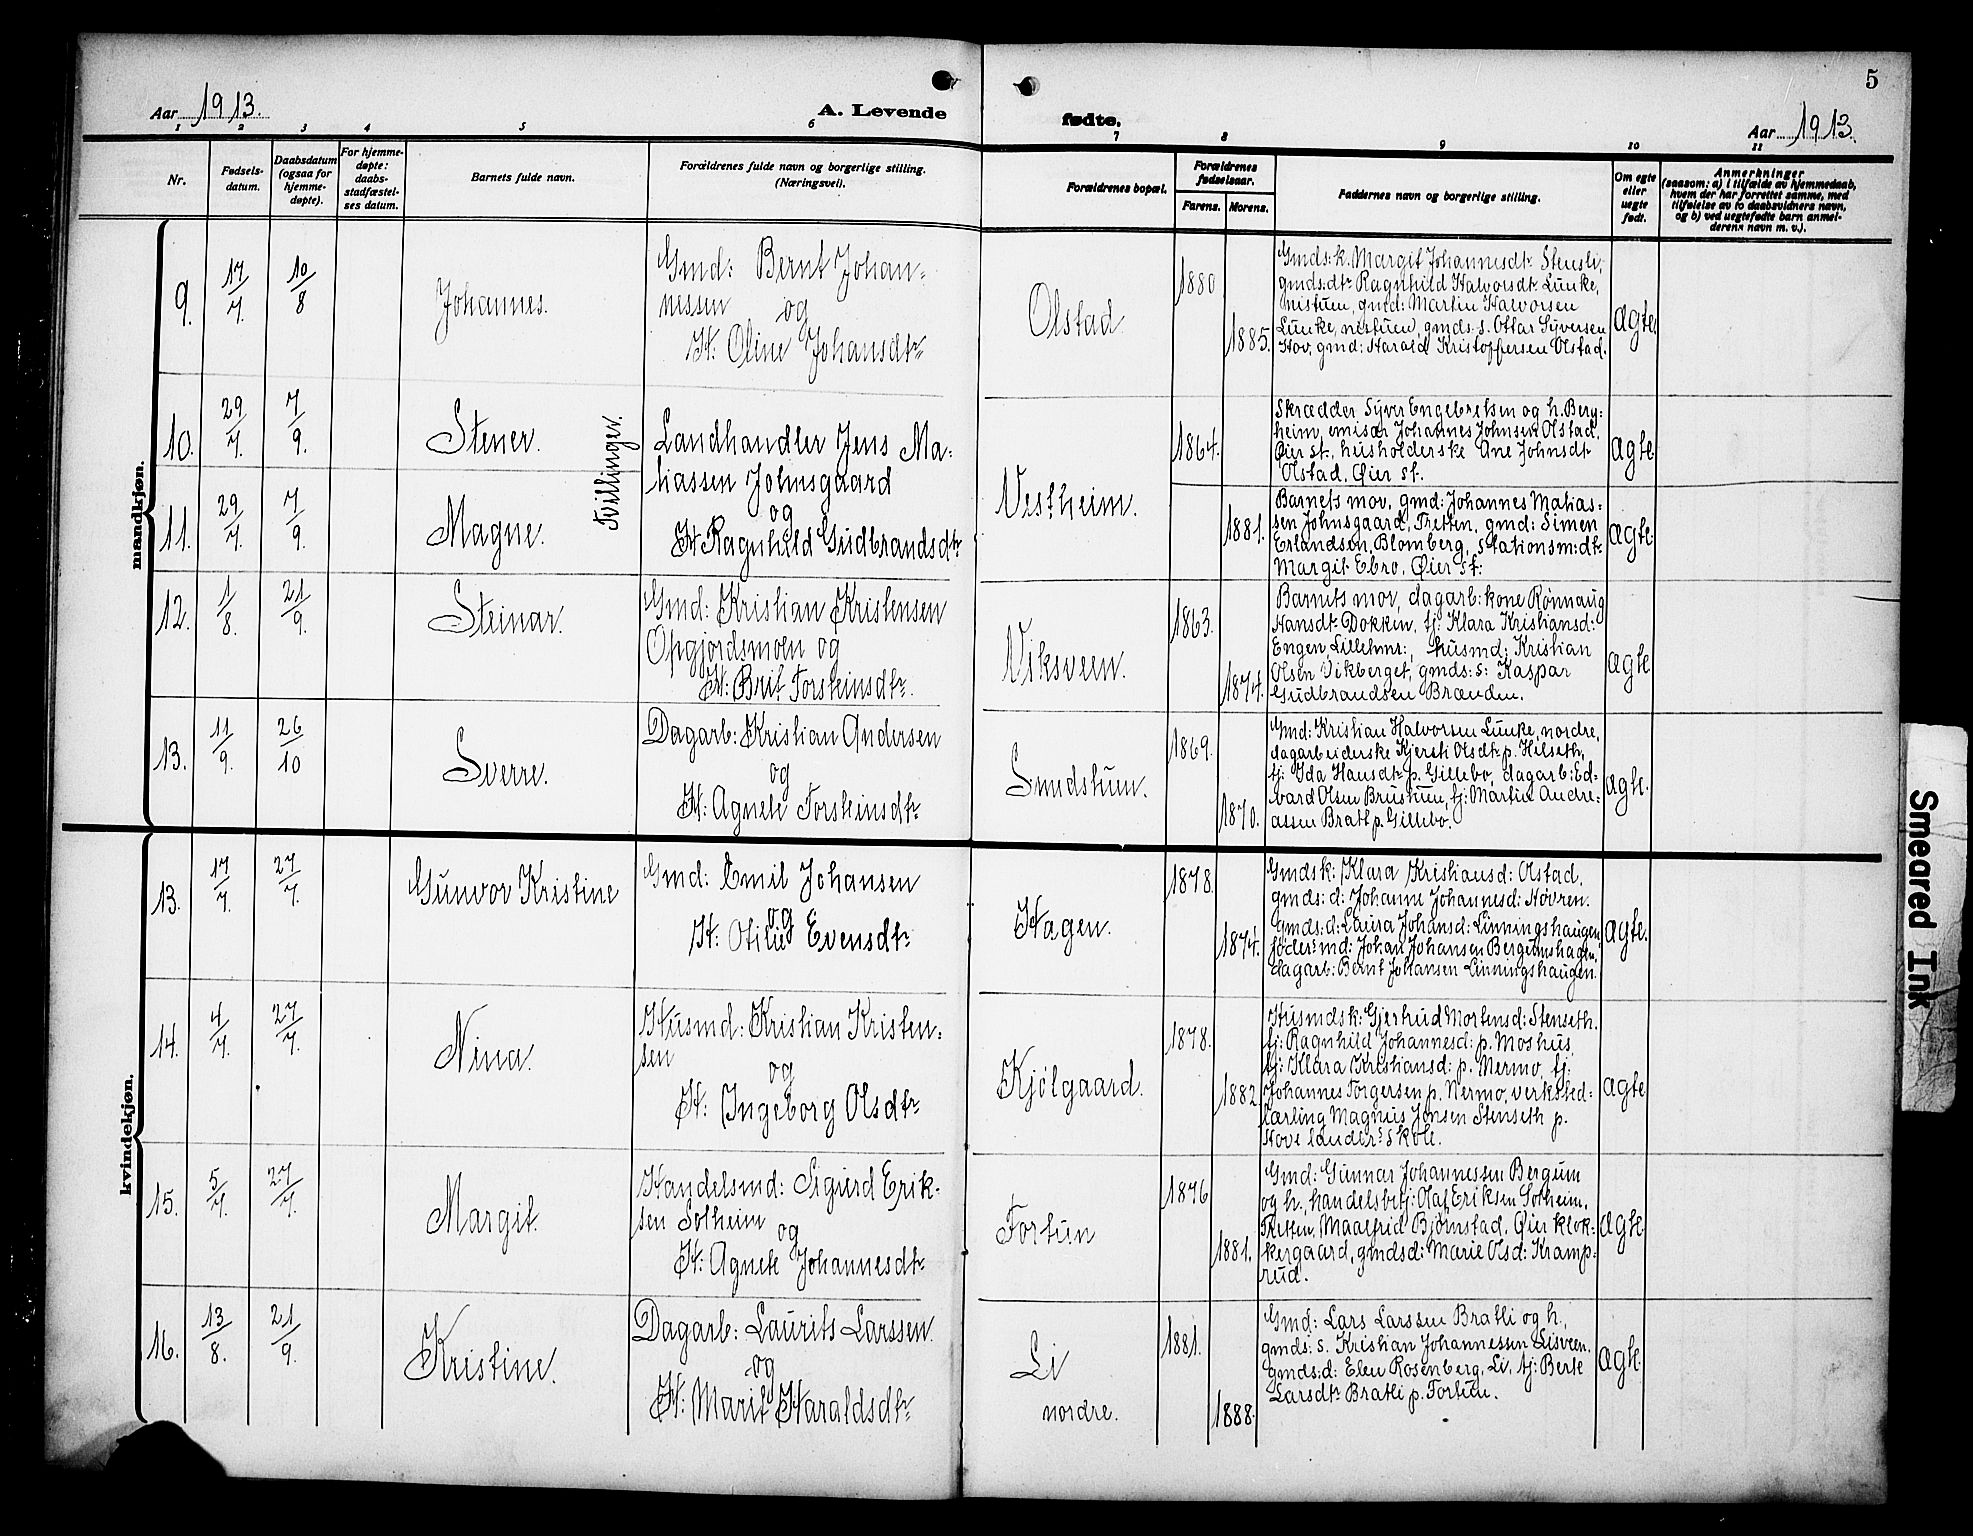 5
Aar 1913.
A. Levende
fødte.
Aar 1913.
1 2 3 4 5 6 7 8 9 10 11
Nr.
Fødsels-
datum.
Daabsdatum
(ogsaa for
hjemme-
døpte).
For hjemme-
døpte:
daabs-
stadfæstel-
ses datum.
Barnets fulde navn.
Forældrenes fulde navn og borgerlige stilling.
(Næringsvei).
Forældrenes bopæl.
Forældrenes
fødselsaar.
Farens. Morens.
Faddernes navn og borgerlige stilling.
Om egte
eller
uegte
født.
Anmerkninger
(saasom: a) i tilfælde av hjemmedaab,
hvem der har forrettet samme, med
tilføielse av to daabsvidners navn,
og b) ved uegtefødte barn anmel-
derens navn m. v.).
mandkjøn.
9.
17/7.
10/8
Johannes.
Gmd: Bernt Johan-
nessen og
H: Oline Johansdtr
Olstad
1880
1885.
Gmds:k. Margit Johannesdtr Stensli,
gmds:dtr Ragnhild Halvorsdtr Lunke,
nistuen, gmd: Martin Halvorsen
Lunke, nistuen, gmds:s. Ottar Syversen
Hov, gmd: Harald Kristoffersen Olstad.
ægte.
10.
29/7.
7/9.
Stener.
Tvillinger.
Landhandler Jens Ma-
tiassen Johnsgaard
og
H: Ragnhild Gudbrandsdtr
Vestheim.
1864.
Skrædder Syver Engebretsen og h. Berg-
heim, emisær Johannes Johnsen Olstad,
Øier st., husholderske Ane Johnsdtr
Olstad, Øier st.
ægte.
11.
29/7.
7/9.
Magne.
1881.
Barnets mor, gmd: Johannes Matias-
sen Johnsgaard, Tretten, gmd: Simen
Erlandsen, Blomberg, stationsm:dtr
Margit Ebro, Øier st:
ægte.
12.
1/8.
21/9.
Steinar.
Gmd: Kristian Kristensen
Opgjordsmoen og
H: Brit Torsteinsdtr.
Viksveen.
1863.
1874.
Barnets mor, dagarb:kone Rønnaug
Hansdtr Dokken, tj: Klara Kristiansd:
Engen, Lillehmr:, husmd: Kristian
Olsen Vikberget, gmds:s: Kaspar
Gudbrandsen Brænden.
ægte
13.
11/9.
26/10
Sverre.
Dagarb: Kristian Andersen
og
H: Agnete Torsteinsdtr
Smedstuen.
1869.
1870.
Gmd: Kristian Halvorsen Lunke, nordre,
dagarbeiderske Kjersti Olsdtr p. Hilseth,
tj: Ida Hansdtr p. Gillebo, dagarb: Ed-
vard Olsen Brustuen, tj: Martin Andre-
assen Bratt p. Gillebo.
ægte.
kvindekjøn.
13.
17/7.
27/7.
Gunvor Kristine
Gmd: Emil Johansen
og
H: Otilie Evensdtr
Hagen.
1878.
1874.
Gmdsk: Klara Kristiansd: Olstad,
gmds:d: Johanne Johannesd: Høvren.
Gmds:d: Laura Johansd: Linningshaugen,
føder:md: Johan Johansen Bergumshagen,
dagarb: Bernt Johansen Linningshaugen.
ægte.
14.
4/7.
27/7.
Nina.
Husmd: Kristian Kristen-
sen
og
H: Ingeborg Olsdtr
Kjölgaard.
1878.
1882
Husmdsk: Gjertrud Mortensd: Stenseth,
tj: Ragnhild Johannesd: p. Moshus,
tj: Klara Kristiansd: p. Mermo, tj:
Johannes Torgersen p. Nermo, verksted-
lærling Magnus Jonsen Stenseth p.
Hovelanders skole.
ægte
15.
5/7.
27/7.
Margit.
Handelsmd: Sigurd Erik-
sen Solheim
og
H: Agnete Johannesdtr
Fortun
1876
1881.
Gmd: Gunnar Johannessen Bergum
og h., handelsbetj: Olaf Eriksen Solheim,
Tretten, Maalfrid Bjørnstad, Øier klok-
kergaard, gmdsd: Marie Olsd: Kramp-
rud.
ægte.
16.
13/8.
21/9.
Kristine.
Dagarb: Laurits Larssen.
og
H: Marit Haraldsdtr
Li
nordre.
1881.
1888.
Gmd: Lars Larssen Bratli og h.,
gmds:s. Kristian Johannessen Lisveen.
gmds:d: Elen Rosenberg, Li, tj: Berte
Larsdtr Bratli p. Fortun.
ægte.
Smeared Ink